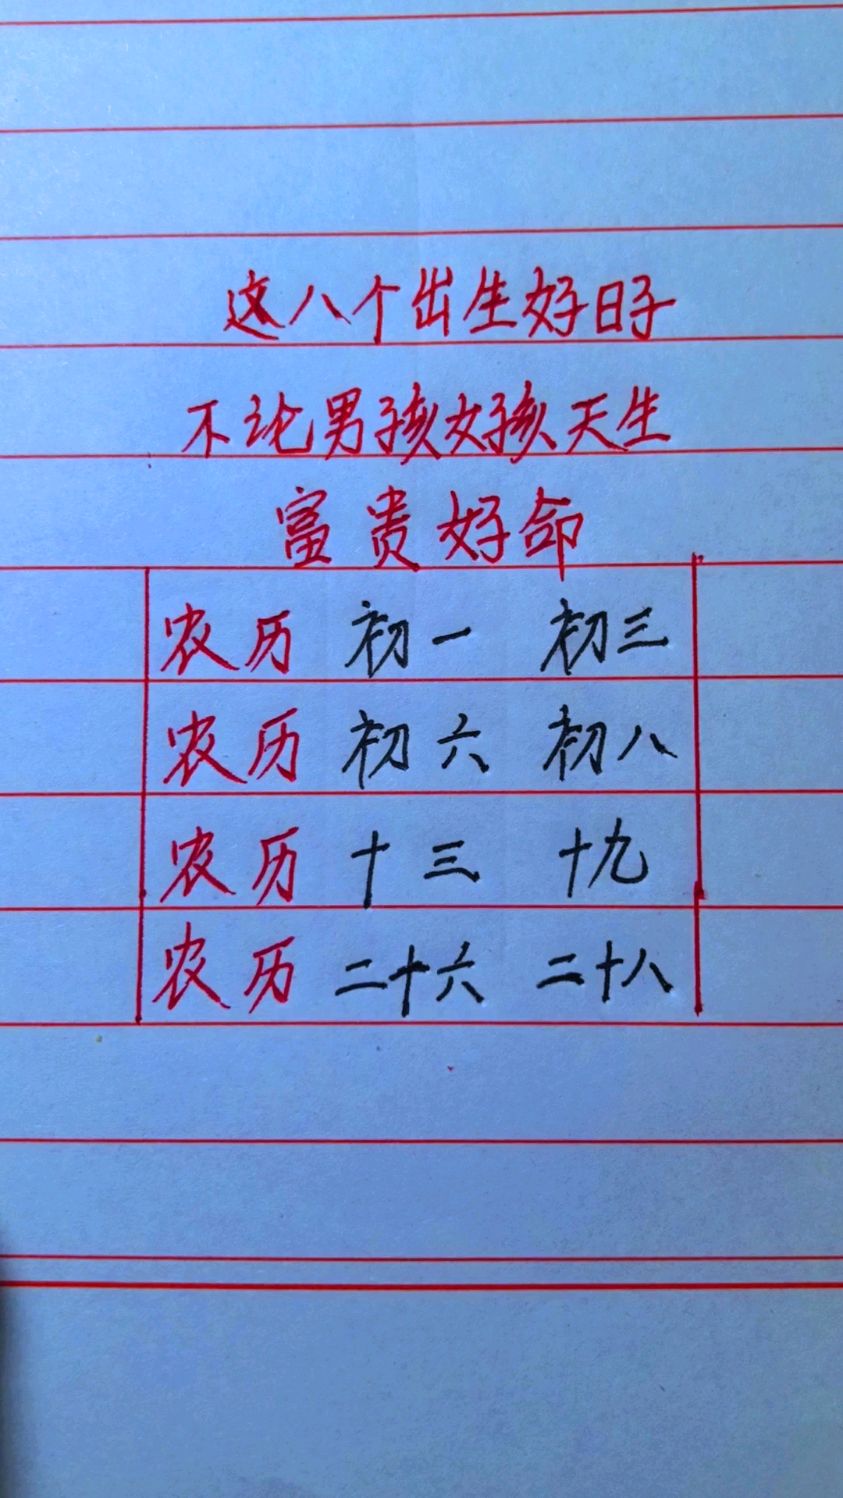 这八个出生好日子
不论男孩女孩天生
富贵好命
农历 初一 初三
农历 初六 初八
农历 十三 十九
农历 二十六 二十八